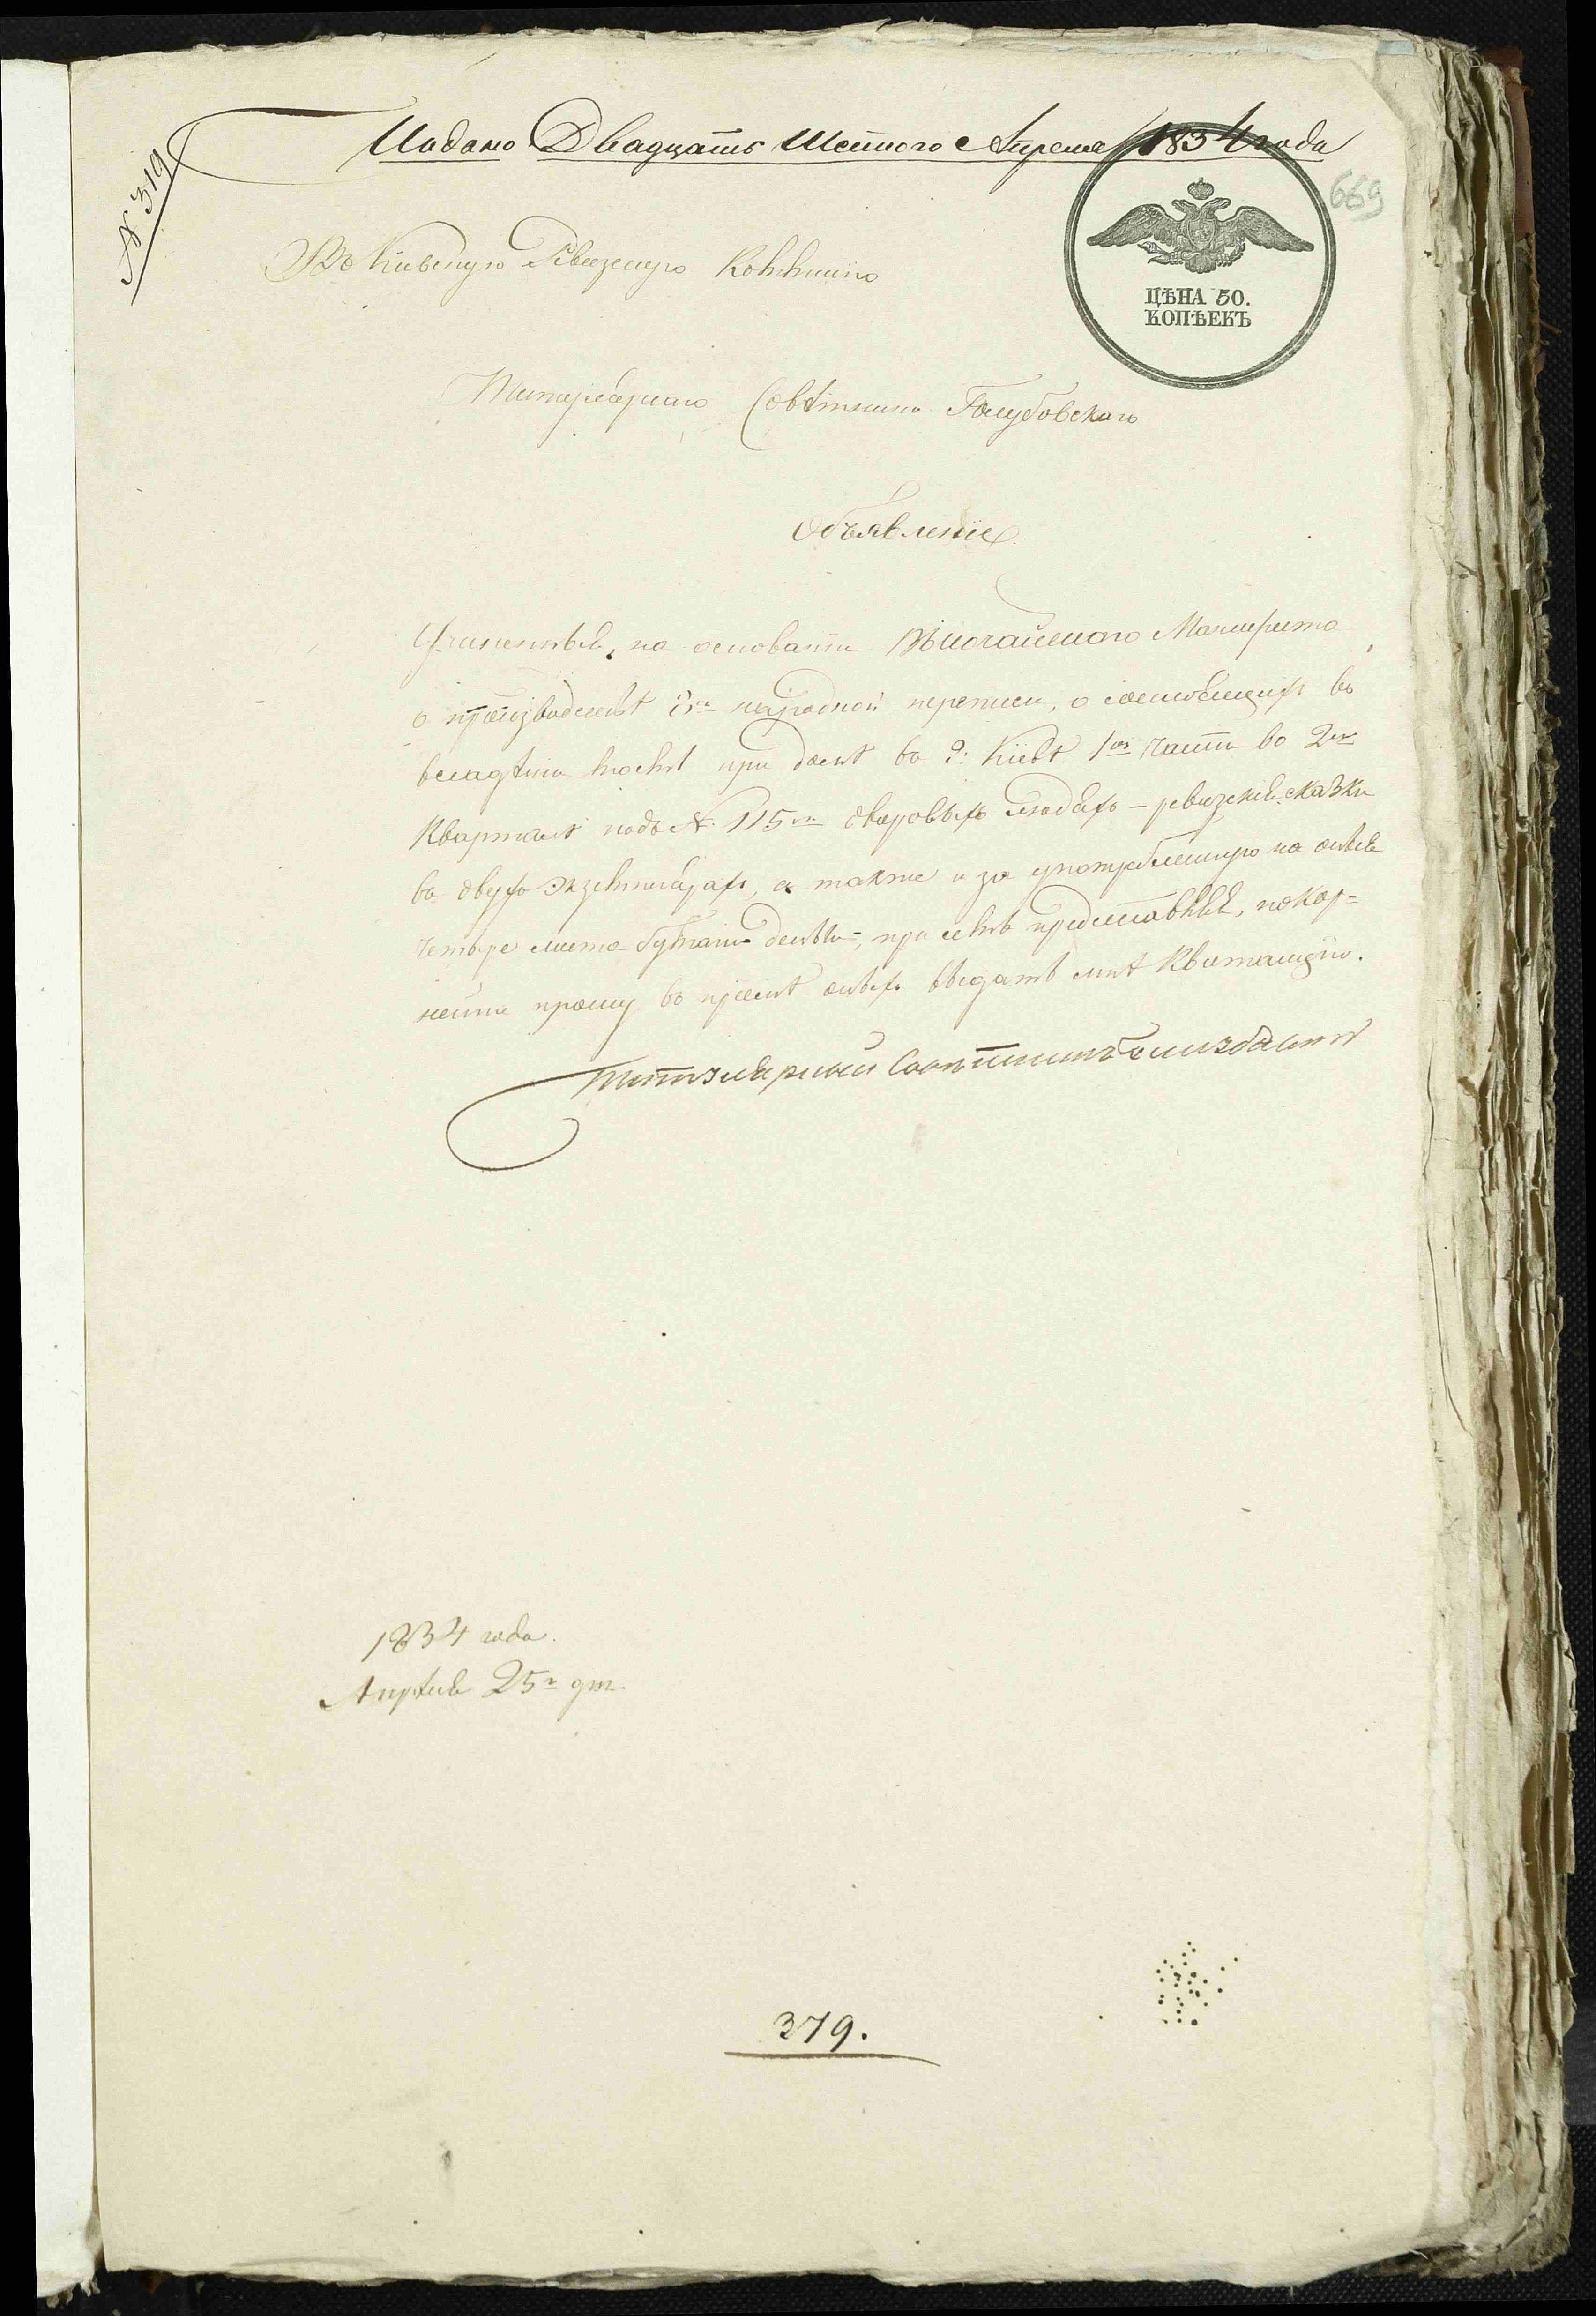 N 319
Подано Двадцать Шестого Апреля 1834 года
669
ЦѢНА 50.
КОПѢЕКЪ
Въ Кіевскую Ревизскую Коммисію
Титулярнаго Совѣтника Голубовскаго
Объявленіе
на основаніи Высочайшаго Манифеста
о производствѣ 8й народной переписи, о состоящихъ во
владѣніи моемъ при домѣ въ г: Кіевѣ 1й части во 2м
Кварталѣ подъ N. 115м дворовыхъ людяхъ - ревизскія сказки
въ двухъ экземплярахъ, а также и за употребленную на оныя
четыре листа бумагу деньги, при семъ представляя, покор=
нейше прошу въ пріемѣ оныхъ выдать мнѣ Квитанцію.
Титулярный Советникъ
1834 года.
Апрѣля 25го дня.
379.